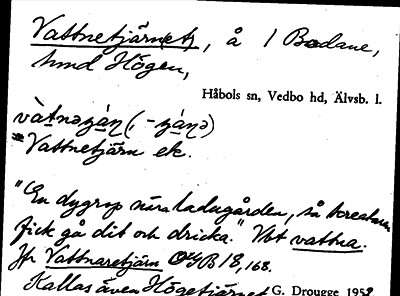 Vattnetjärnet, å 1 Bodane,
hmd Högen,
Håbols sn, Vedbo hd, Älvsb. l.
Vattnetjärn ek.
"En dygrop nära ladugården, så kreaturen
fick gå dit och dricka." Vbt vattna.
Jfr Vattnaretjärn OGB 18, 168.
Kallas även Högetjärnet G. Drougge 1958